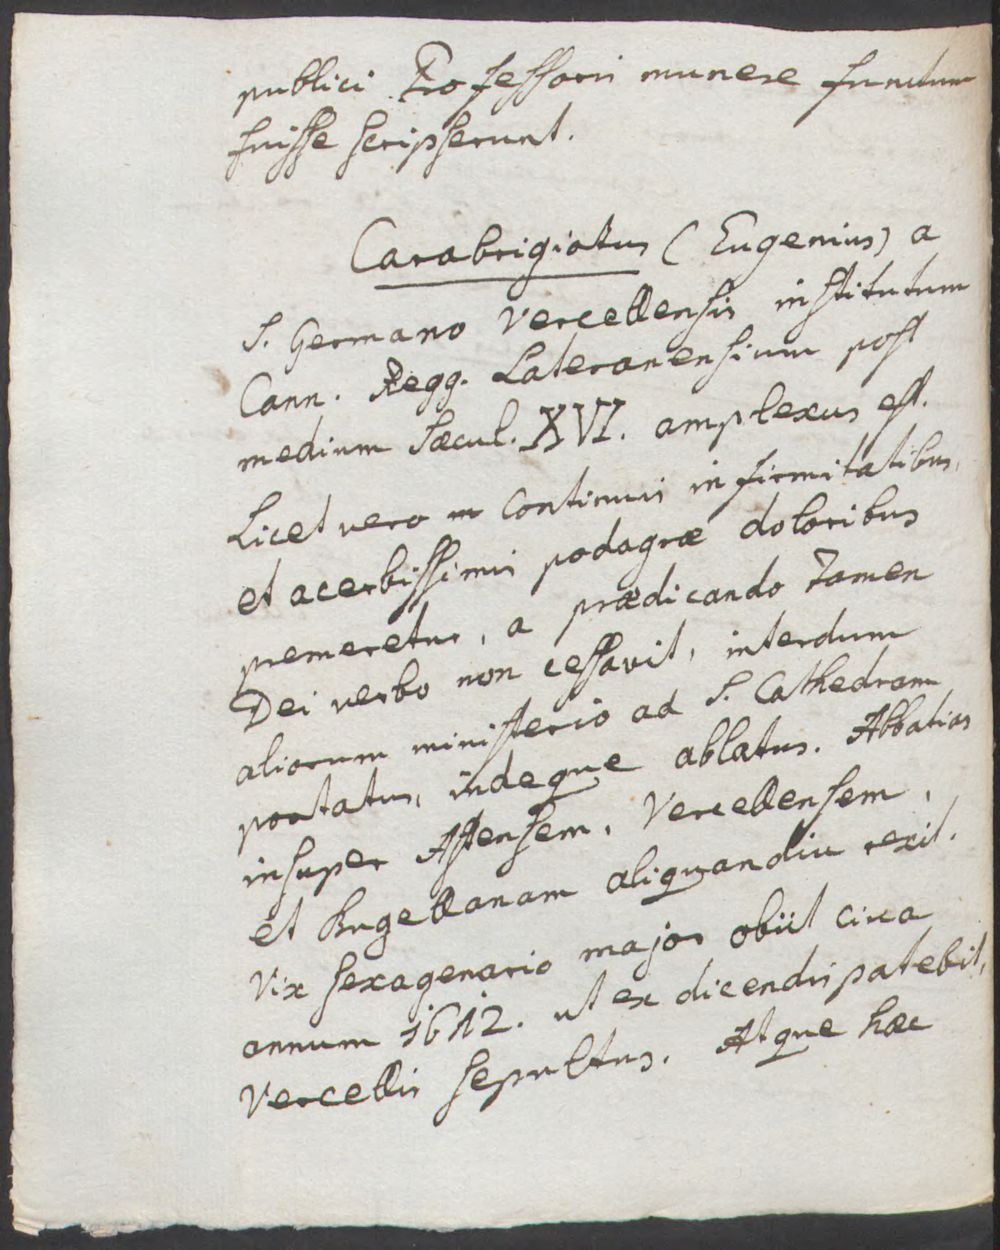 publici Professoris munere functum
fuisse scripserunt.
Carabrigiotus (Eugenius) a
S. Germano Vercellensis institutum
Cann. Regg. Lateranensium post
medium Sæcul. XVI. amplexus est.
Licet vero continuis infirmitatibus,
et acerbissimis podagræ doloribus
premeretur, a prædicando tamen
Dei verbo non cessavit, interdum
aliorum ministerio ad S. Cathedram
portatus, indeque ablatus. Abbatias
insuper Astensem, Vercellensem,
et Rugellanam aliquandiu rexit.
Vix sexagenario major obiit circa
annum 1612. ut ex dicendis patebit,
Vercellis sepultus. Atque hæc